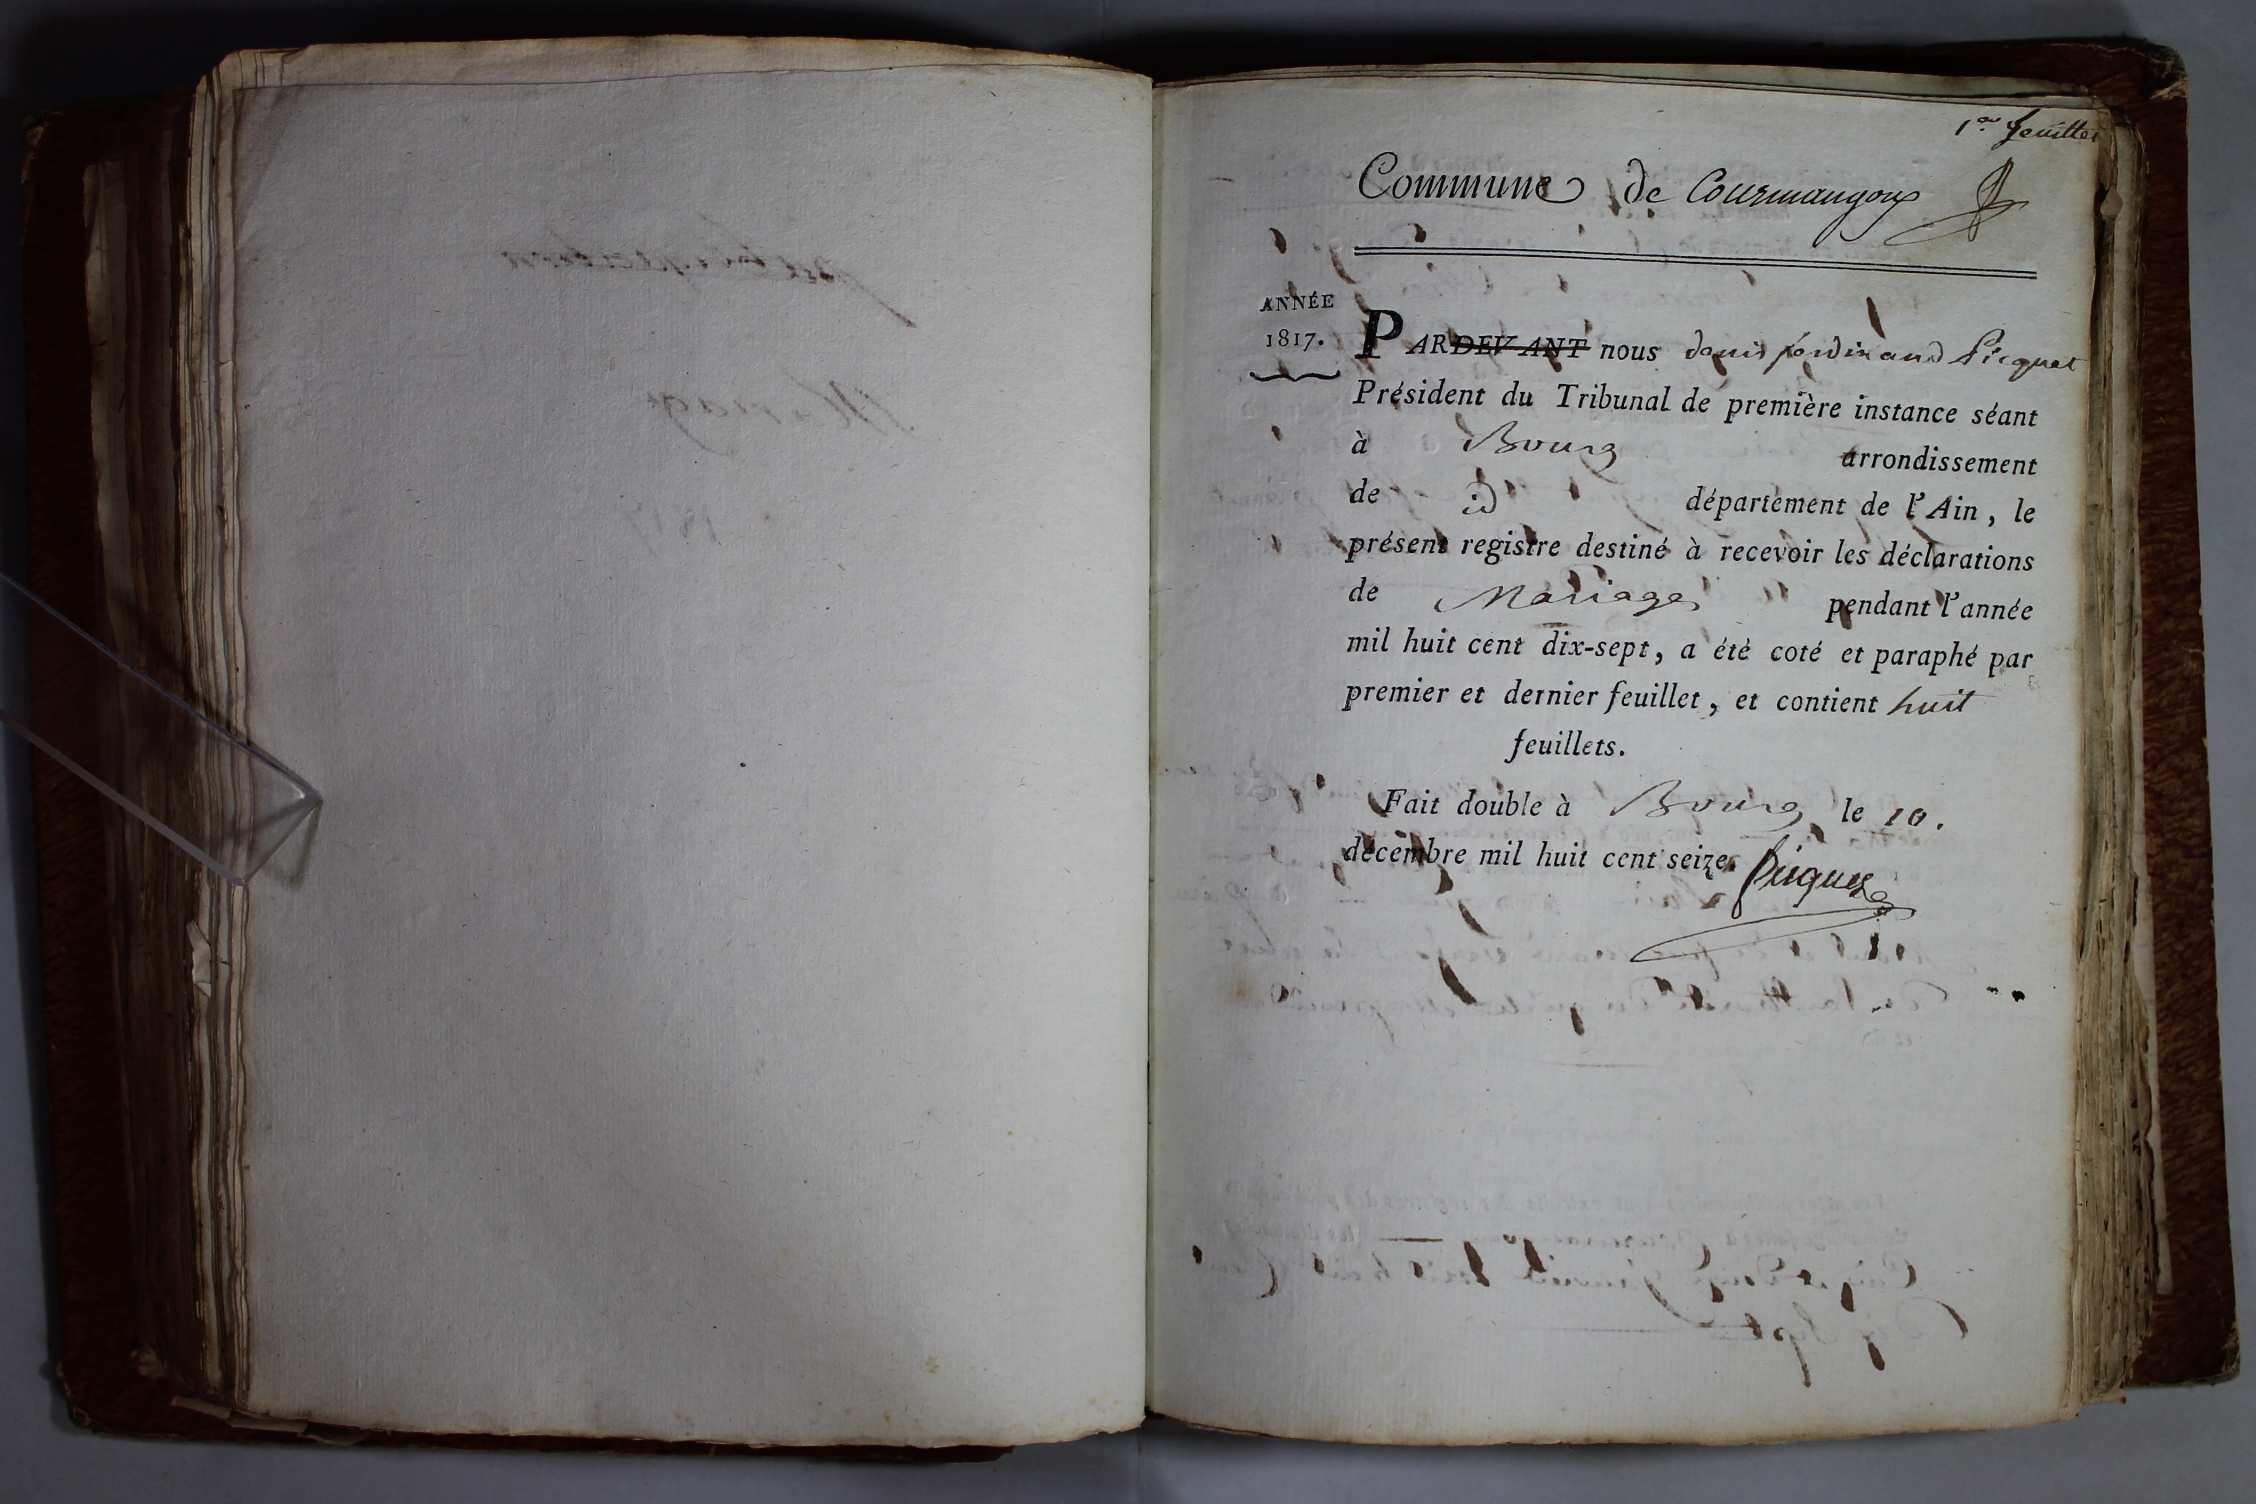 1er feuillet
Commune de Courmangoux
ANNÉE
1817.
PARDEVANT nous denis ferdinand Picquet
Président du Tribunal de première instance séant
à Bourg arrondissement
de id département de l'Ain, le
présent registre destiné à recevoir les déclarations
de Mariages pendant l'année
mil huit cent dix-sept, a été coté et paraphé par
premier et dernier feuillet, et contient huit
feuillets.
Fait double à Bourg le 10.
décembre mil huit cent seize. Picquet